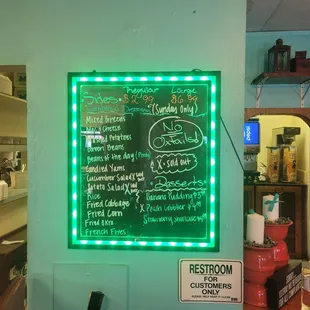 Sides: Regular Large
$2.99 $6.99
(Sunday Only)
Mixed Greens
Mac & Cheese
Mashed Potatoes
Green Beans
Beans of the day (Pinto)
Candied Yams
Cucumber Salad X
Potato Salad X
Rice
Fried Cabbage
Fried Corn
Fried Okra
French Fries
No
Oxtails!
X - sold out
Desserts
Banana Pudding
X Peach Cobbler
Strawberry
RESTROOM
FOR
CUSTOMERS
ONLY